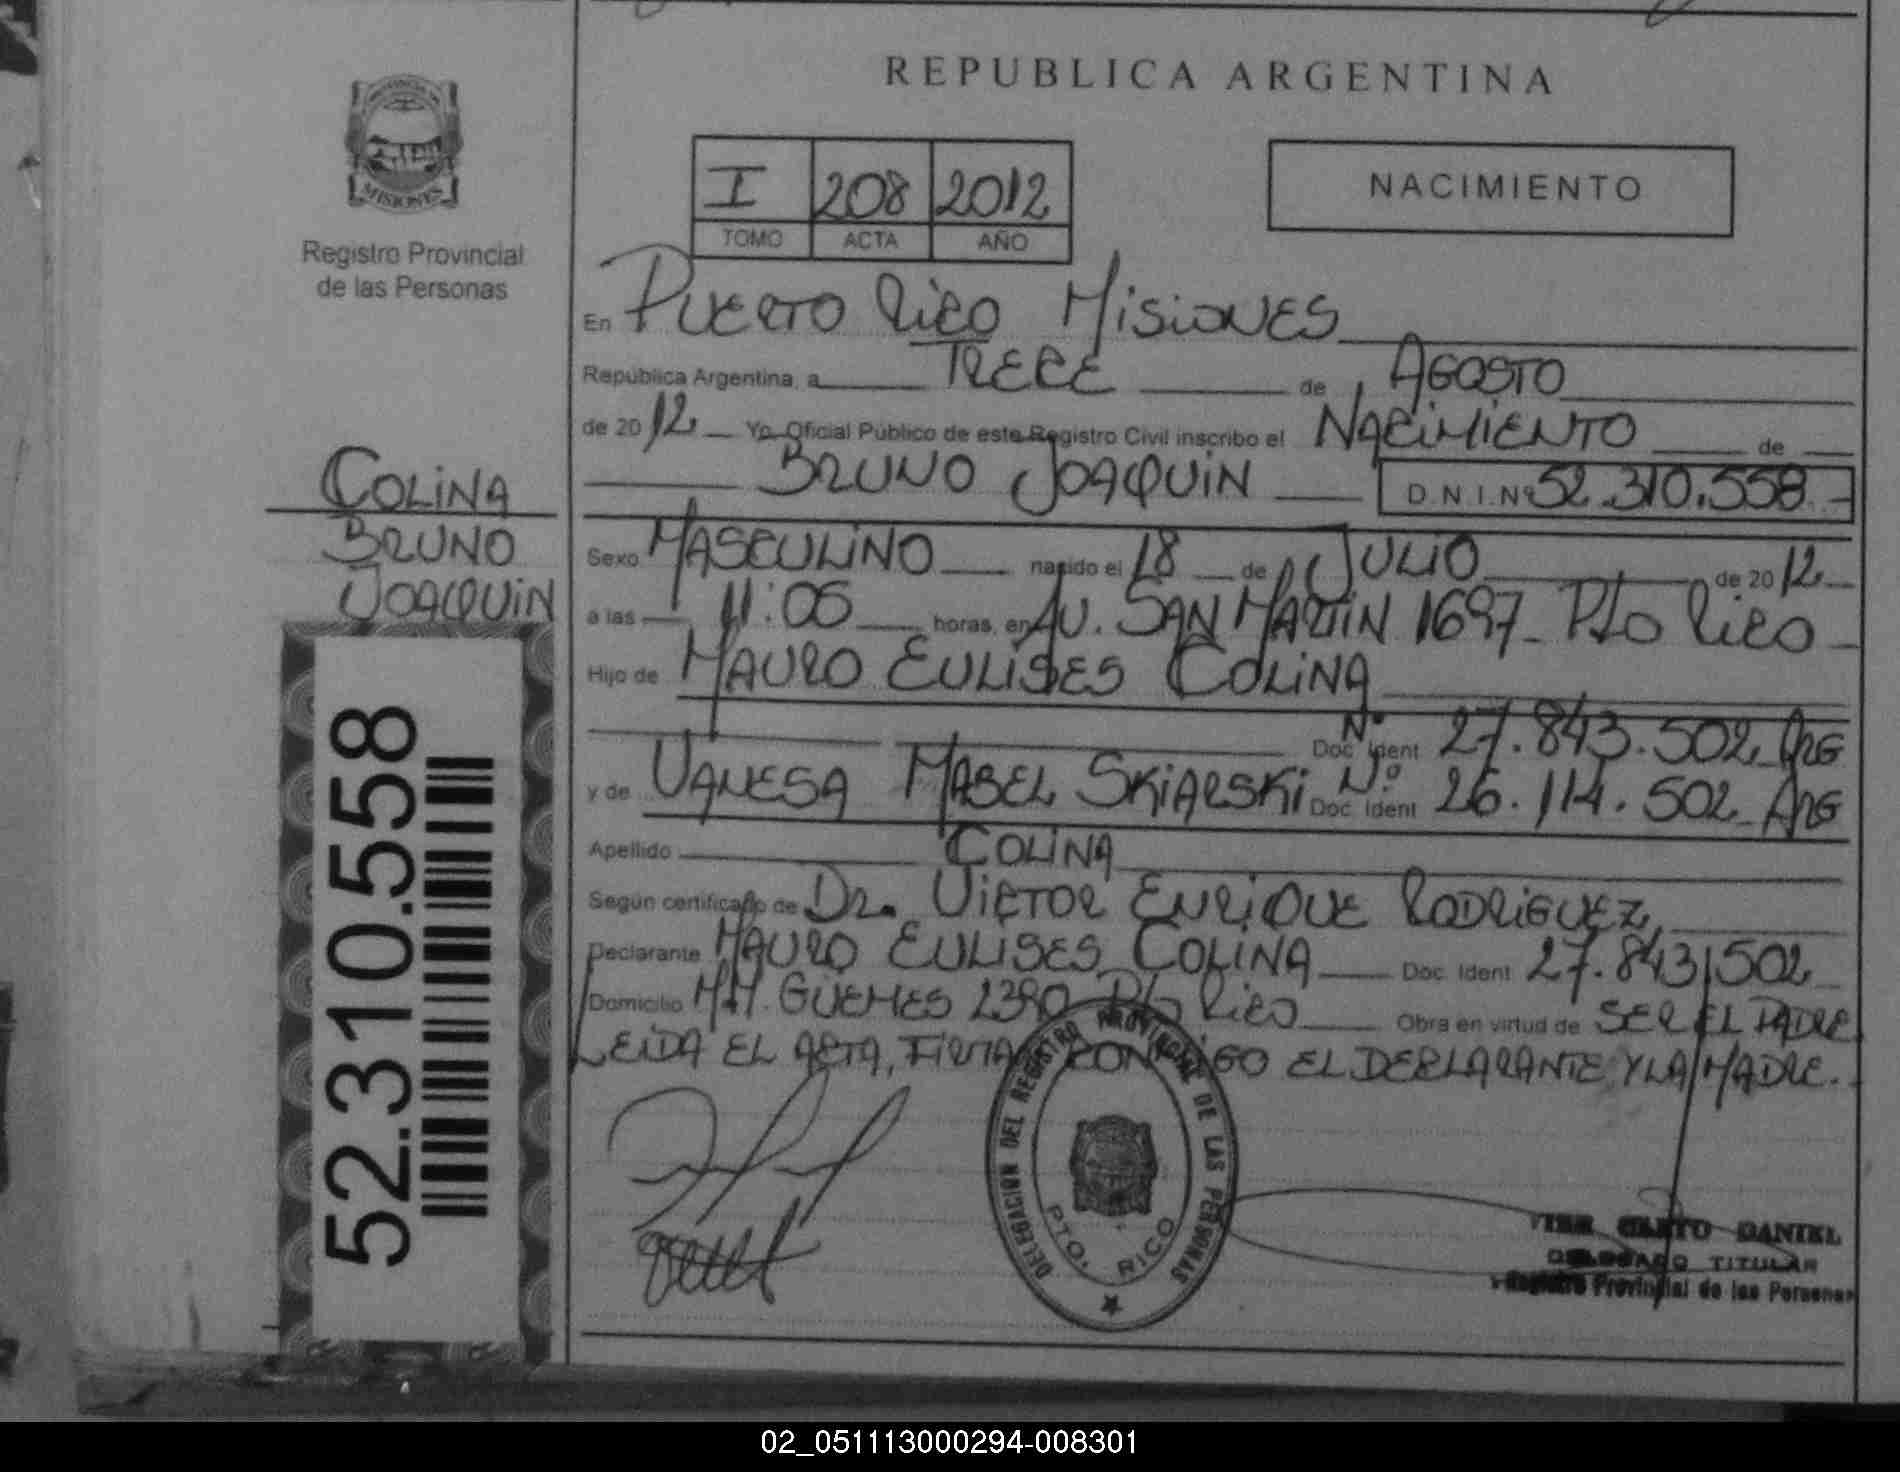 REPUBLICA ARGENTINA
MISIONES
Registro Provincial
de las Personas
I 208 2012
TOMO ACTA AÑO
NACIMIENTO
En PUERTO RICO MISIONES
República Argentina, a TRECE de AGOSTO
de 2012 Yo Oficial Público de este Registro Civil inscribo el NACIMIENTO de
BRUNO JOAQUIN D.N.I.Nº 52.310.558.-
COLINA
BRUNO
JOAQUIN
Sexo MASCULINO nacido el 18 de JULIO de 2012
a las 11:05 horas, en AV. SAN MARTIN 1697 - Pto RICO -
Hijo de MAURO EULISES COLINA
Nº Doc. Ident 27.843.502 ARG
y de VANESA MABEL SKIARSKI Nº Doc. Ident 26.114.502 ARG
Apellido COLINA
Según certificado de DR. VICTOR ENRIQUE RODRIGUEZ,
Declarante MAURO EULISES COLINA Doc. Ident 27.843.502
Domicilio M.M. GÜEMES 2390 Pto RICO Obra en virtud de SER EL PADRE
LEIDA EL ACTA, FIRMAN CONMIGO EL DECLARANTE Y LA MADRE.
52.310.558
DELEGACION DEL REGISTRO PROVINCIAL DE LAS PERSONAS
PTO. RICO
DANIEL
DELEGADO TITULAR
Registro Provincial de las Personas
02_051113000294-008301